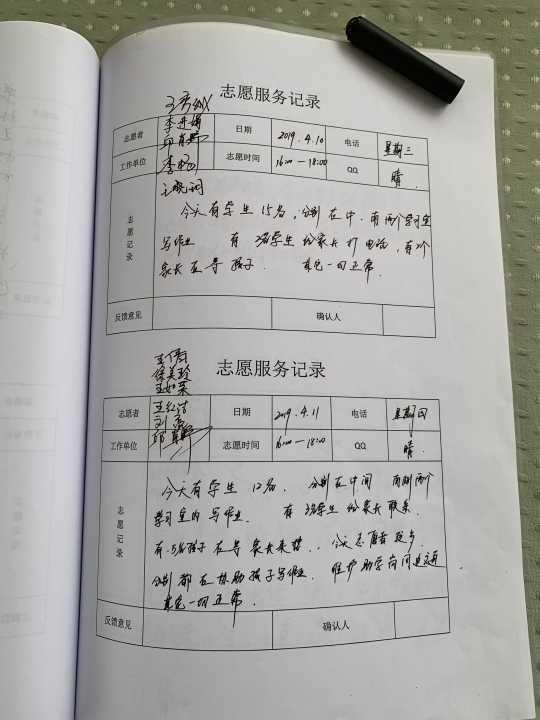 志愿服务记录
志愿者 李开娟 日期 2019.4.10 电话 星期三
工作单位 李 志愿时间 16:00—18:00 QQ 晴
王晓词
志愿记录
今天有学生15名,分别在中、南两个学习室
写作业 有3名学生给家长打电话,有1个
家长在寻孩子. 其它一切正常.
反馈意见 确认人
王倩
徐美玲
王如菜
志愿服务记录
志愿者 王红洁 日期 2019.4.11 电话 星期四
刘
工作单位 邱 志愿时间 16:00—18:00 QQ 晴.
志愿记录
今天有学生12名. 分别在中间 南侧两个
学习室内写作业. 有3名学生给家长联系.
有5名孩子在等家长来接.. 今天志愿者
分别都在协助孩子写作业. 维护助学岗
其它一切正常.
反馈意见 确认人